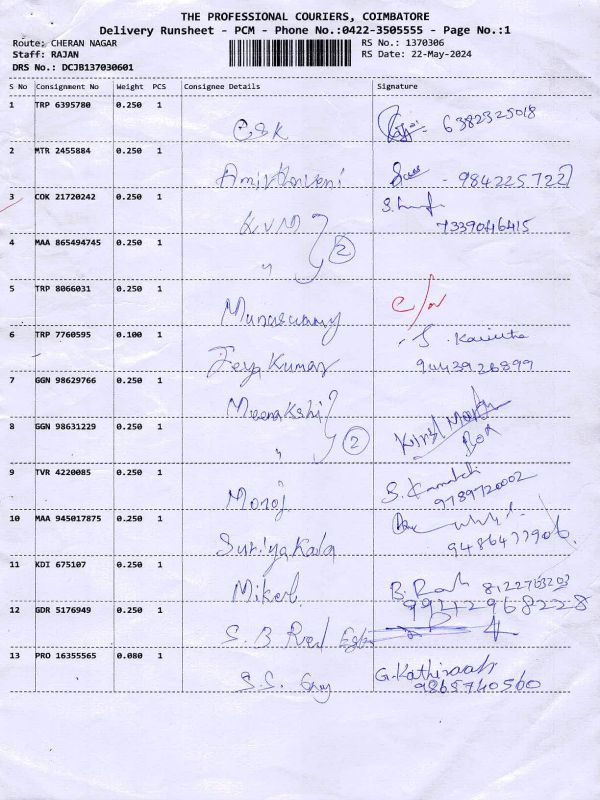 THE PROFESSIONAL COURIERS, COIMBATORE
Delivery Runsheet - PCM - Phone No.:0422-3505555 - Page No.:1
Route: CHERAN NAGAR RS No.: 1370306
Staff: RAJAN RS Date: 22-May-2024
DRS No.: DCJB137030601
S No Consignment No Weight PCS Consignee Details Signature
1 TRP 6395780 0.250 1
CSK 6382325018
2 MTR 2455884 0.250 1
Amirthaveni - 984225722
3 COK 21720242 0.250 1
KVM 7339046415
4 MAA 865494745 0.250 1
" 2
5 TRP 8066031 0.250 1
Munaswamy
6 TRP 7760595 0.100 1
Jeya Kumar 9443926899
7 GGN 98629766 0.250 1
Meenakshi
8 GGN 98631229 0.250 1
" 2
9 TVR 4220085 0.250 1
Manoj 9789720002
10 MAA 945017875 0.250 1
Suriyakala 9486477906
11 KDI 675107 0.250 1
Mikel 8122763203
12 GDR 5176949 0.250 1
S. B. Red 9942968228
13 PRO 16355565 0.080 1
S.S. G. Kathiraah
9865740560